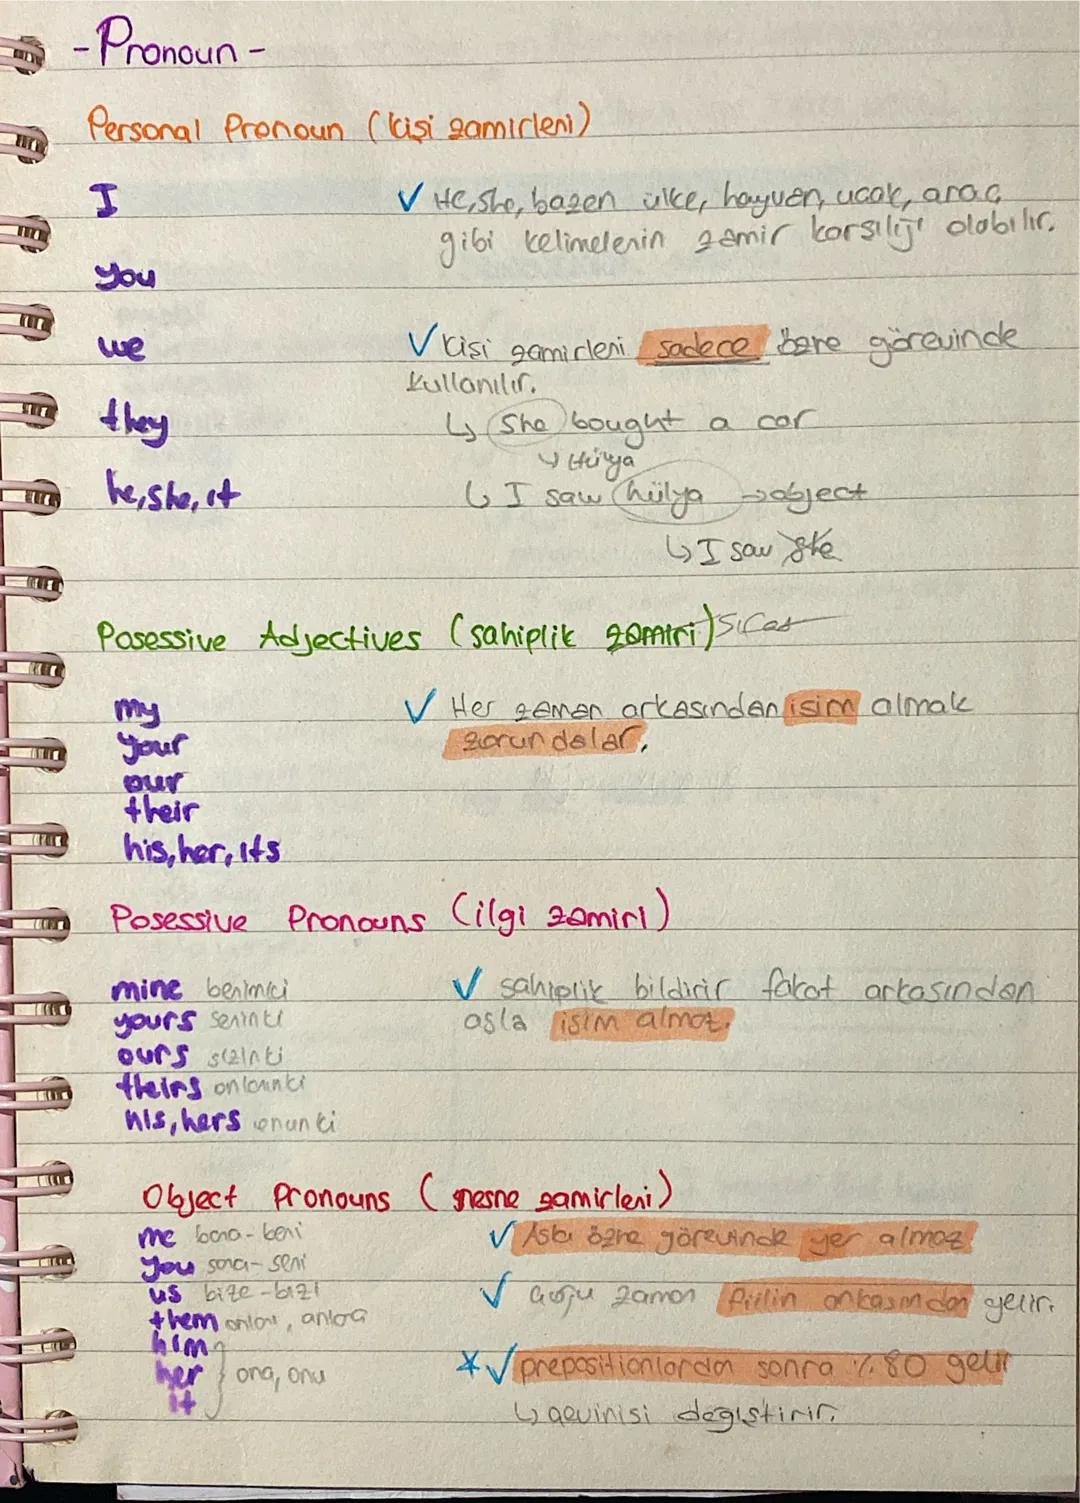 - Pronoun -
Personal Pronoun (kişi zamirleri)
I
✓ He, she, bazen ülke, hayvan, uçak, araç
gibi kelimelerin zamir karşılığı olabilir.
you
we
✓ Kişi zamirleri sadece özne görevinde
kullanılır.
they
↳ She bought a car
↳ Hülya
he, she, it
↳ I saw hülya → object
↳ I saw she
Posessive Adjectives (sahiplik zamiri) sıfat
my
✓ Her zaman arkasından isim almak
your
zorundalar.
our
their
his, her, its
Posessive Pronouns (ilgi zamiri)
mine benimki
✓ sahiplik bildirir fakat arkasından
yours seninki
asla isim almaz.
ours sizinki
theirs onlarınki
his, hers onunki
Object Pronouns (nesne zamirleri)
me bana - beni
✓ Asla özne görevinde yer almaz
you sana - seni
us bize - bizi
✓ Çoğu zaman fiilin arkasından gelir.
them onları, onlara
him
her } ona, onu
* ✓ prepositionlardan sonra %80 gelir
it
↳ çevirisi değiştirir.